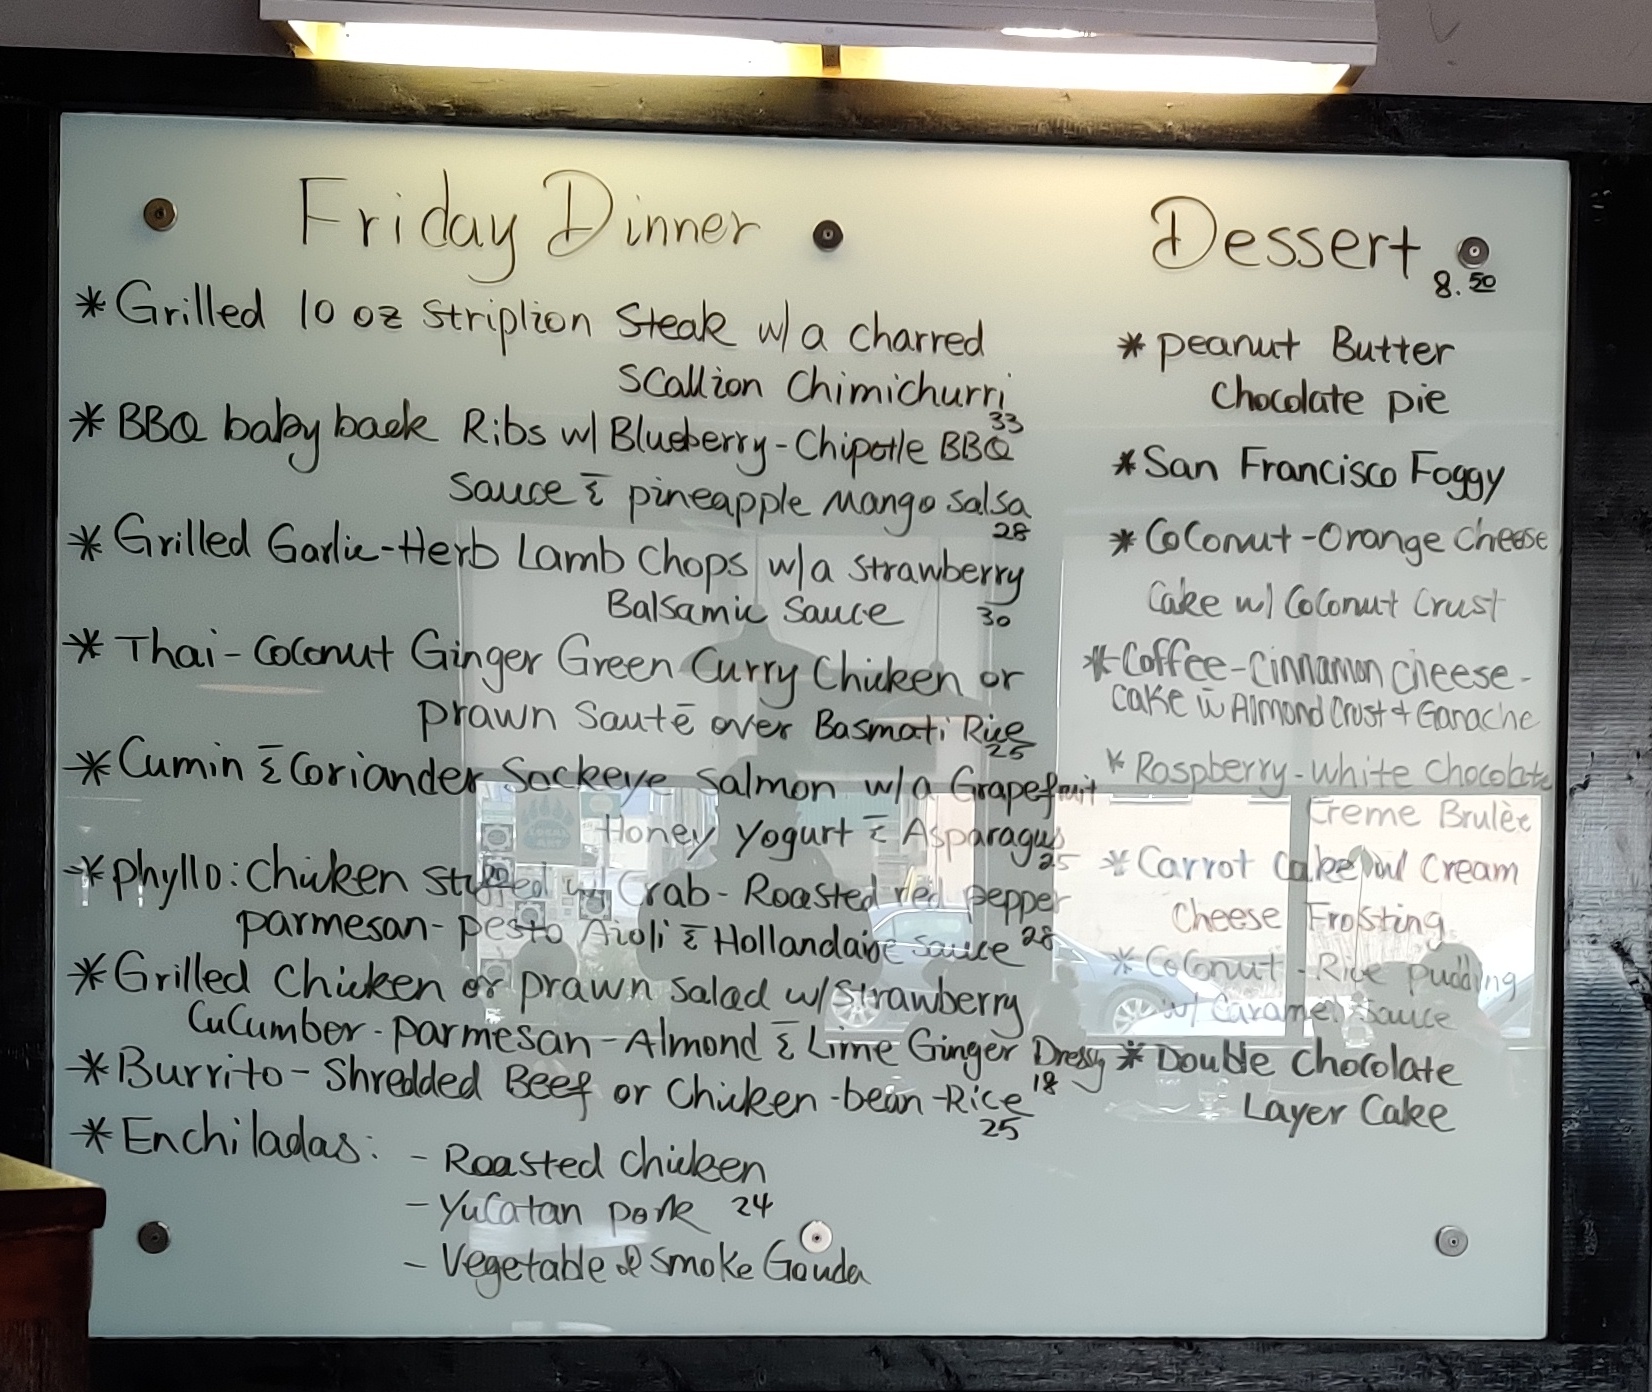 Friday Dinner
*Grilled 10 oz Striplion Steak w/a Charred
Scallion Chimichurri
33
*BBQ baby back Ribs w/ Blueberry-Chipotle BBQ
Sauce & pineapple Mango Salsa
28
*Grilled Garlic-Herb Lamb Chops w/a Strawberry
Balsamic Sauce 30
*Thai-Coconut Ginger Green Curry Chicken or
prawn Sautē over Basmati Rice
25
*Cumin & Coriander Sockeye Salmon w/a Grapefruit
Honey Yogurt & Asparagus
25
*phyllo: Chicken Stuffed w/ Crab-Roasted red pepper
parmesan-pesto Aioli & Hollandaise Sauce 28
*Grilled Chicken or prawn Salad w/ Strawberry
CuCumber-parmesan-Almond & Lime Ginger Dressg
18
*Burrito-Shredded Beef or Chicken-bean-Rice
25
*Enchiladas: -Roasted Chicken
-Yucatan pork 24
-Vegetable & Smoke Gouda
Dessert
8.50
*peanut Butter
Chocolate pie
*San Francisco Foggy
*Coconut-Orange Cheese
Cake w/ Coconut Crust
*Coffee-Cinnamon Cheese-
Cake w Almond Crust + Ganache
*Raspberry-White Chocolate
Creme Brulèe
*Carrot Cake w/ Cream
Cheese Frosting
*Coconut-Rice pudding
w/ Caramel Sauce
*Double Chocolate
Layer Cake